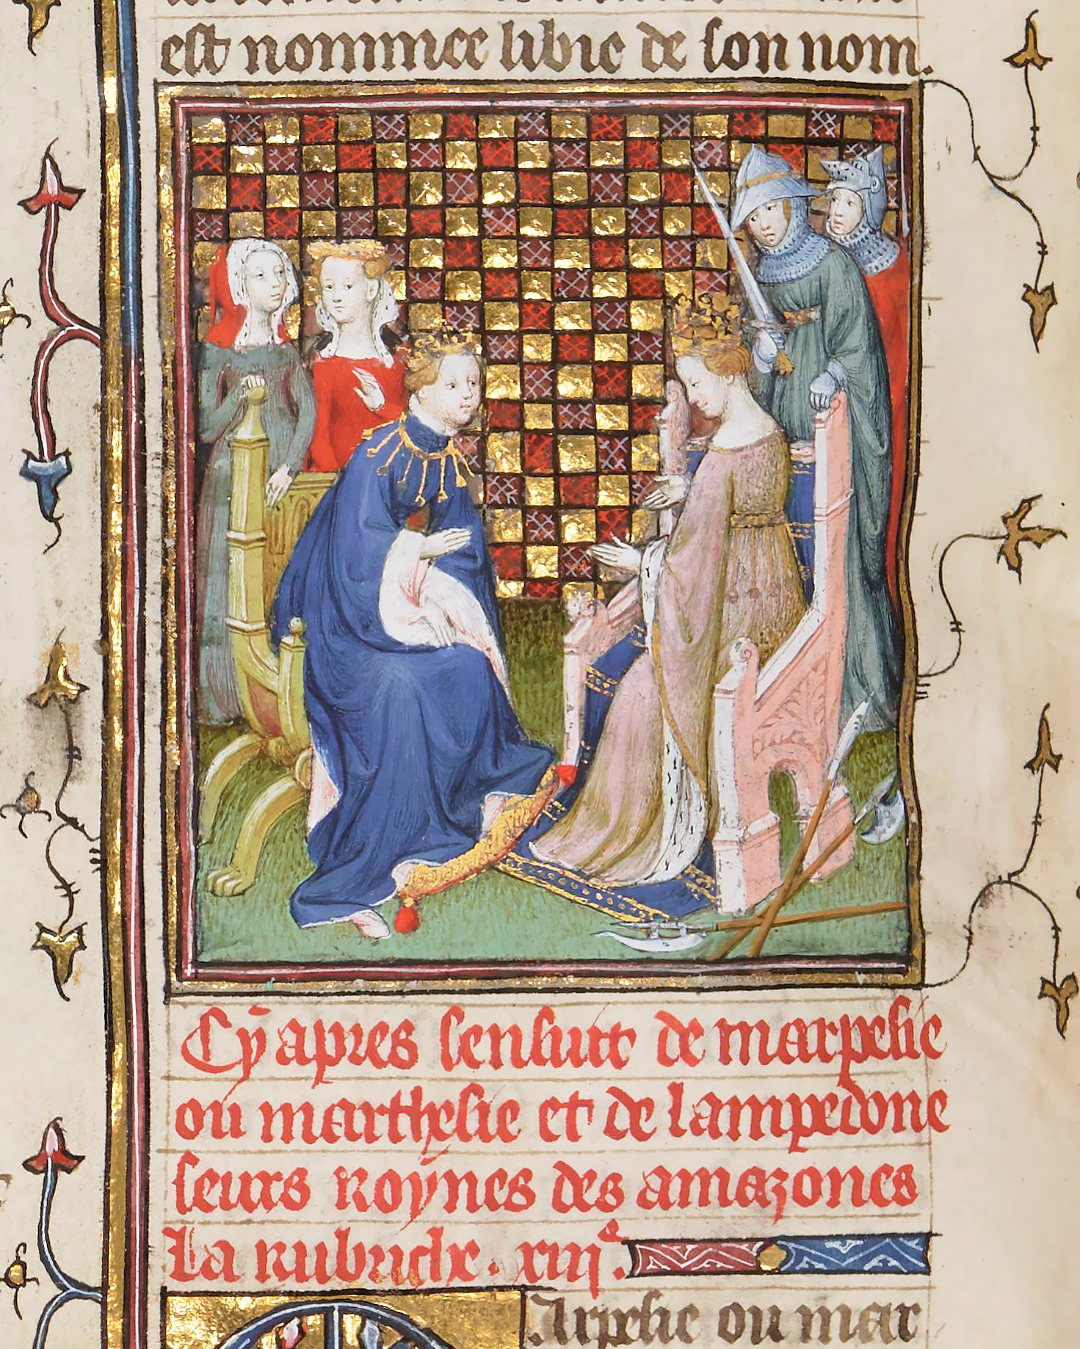 est nommee libie de son nom.
Cy apres sensuit de marpesie
ou marthesie et de lampedone
seurs roynes des amazones
La rubriche. xiii.ᵉ
Arpesie ou mar